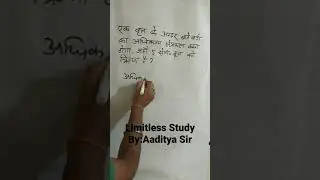 एक वृत्त के अन्दर बने वर्ग
का अधिकतम क्षेत्रफल क्या
होगा, जहाँ
त्रिज्या है ?
अधिक
Limitless Study
By:Aaditya Sir